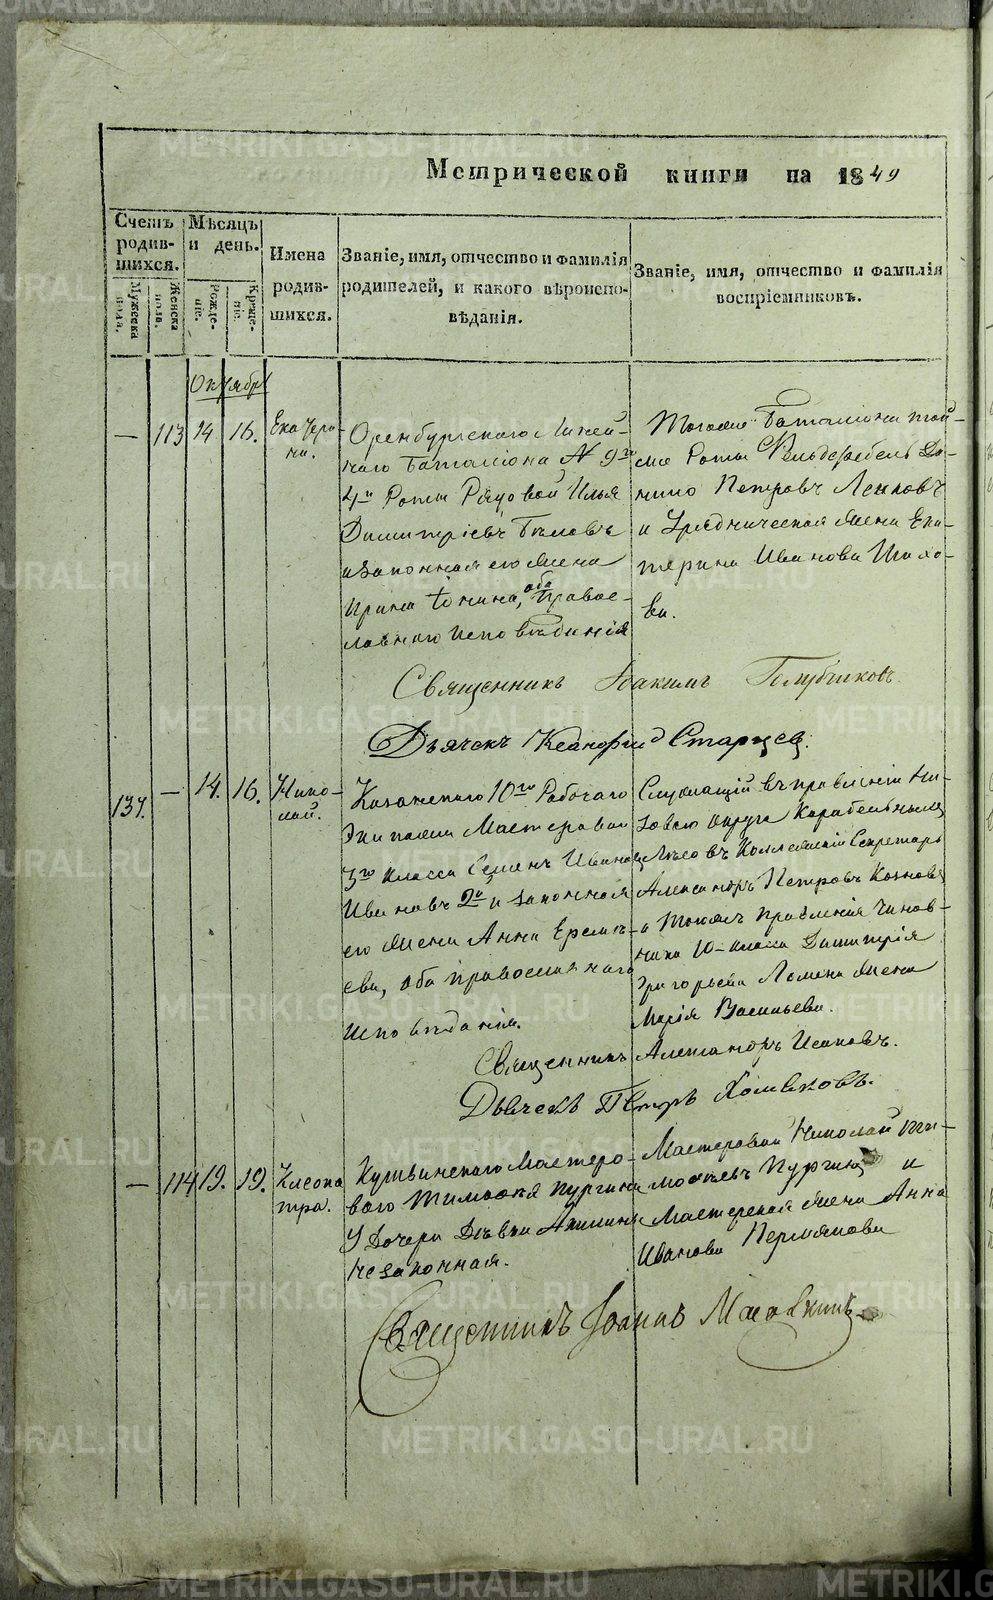 Метрической книги на 1849
Счетъ родив-шихся.
Мужеска пола.
Женска пола.
Мѣсяцъ и день.
Рожде-ніе.
Креще-ніе.
Имена родив-шихся.
Званіе, имя, отчество и фамилія
родителей, и какого вѣроиспо-
вѣданія.
Званіе, имя, отчество и фамилія
воспріемниковъ.
Октябрь
— 113 14 16. Екатери-
на.
Оренбургскаго Линей-
наго Баталіона № 9го
4й Роты Рядовой Илья
Димитріевъ Бѣловъ
и законная его жена
Ирина Іонина, оба право-
славнаго исповѣданія
Тогоже Баталіона той-
же Роты Фельдфебель Да-
нило Петровъ
и Урядническая жена Ека-
терина Иванова
ва.
Священникъ Іоакимъ Голубчиковъ.
Дьячекъ Старцев.
137. — 14. 16. Нико-
лай.
Казанскаго 10го Рабочаго
Экипажа Мастеровой
3го класса Семенъ Иванов
Ивановъ 2й и законная
его жена Анна Еремѣ-
ева, оба православнаго
исповѣданія.
Служащій въ правленіи Ни-
зоваго округа Карабельных
Лѣсовъ Коллежскій Секретарь
Александръ Петровъ
и Тогожъ правленія Чинов-
ника 10 класса Димитрія
Григорьева жена
Марія Васильева.
Священникъ Александръ Исаковъ.
Дьячекъ Петръ Хомяковъ.
— 114 19. 19. Клеопа
тра.
Кушвинскаго Мастеро-
ваго Тимофея Пургина
у Дочери Дѣвки Акилины
незаконная.
Мастеровой Николай Ти-
мофѣевъ Пургинъ и
Мастерская жена Анна
Иванова Пермякова
Священникъ Іоаннъ
METRIKI.GASO-URAL.RU